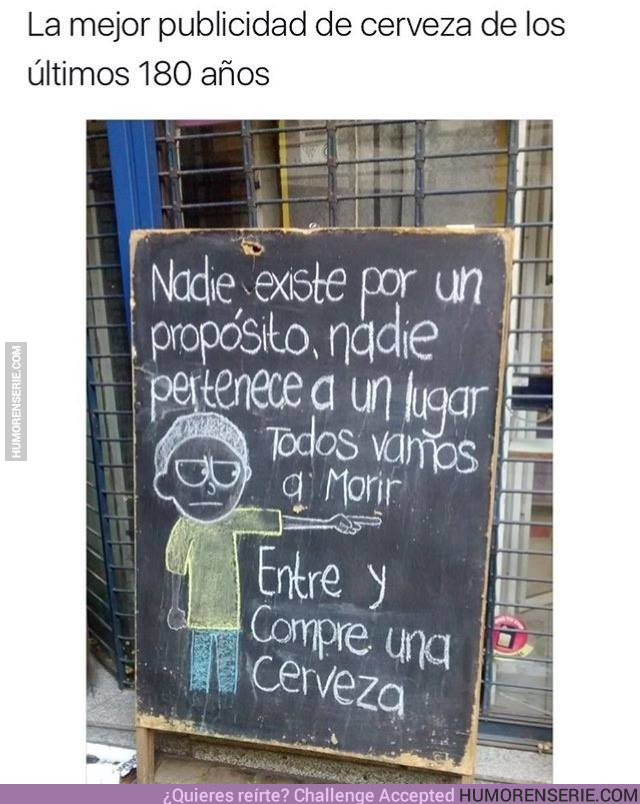 La mejor publicidad de cerveza de los
últimos 180 años
Nadie existe por un
propósito, nadie
pertenece a un lugar
Todos vamos
a Morir
Entre y
Compre una
cerveza
HUMORENSERIE.COM
¿Quieres reírte? Challenge Accepted HUMORENSERIE.COM